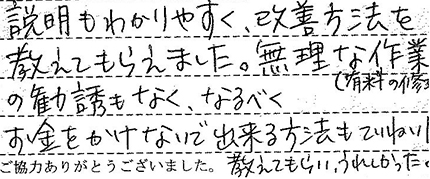 説明もわかりやすく、改善方法を
教えてもらえました。無理な作業
(有料の修
の勧誘もなく、なるべく
お金をかけないで出来る方法もていねいに
ご協力ありがとうございました。 教えてもらい、うれしかった。